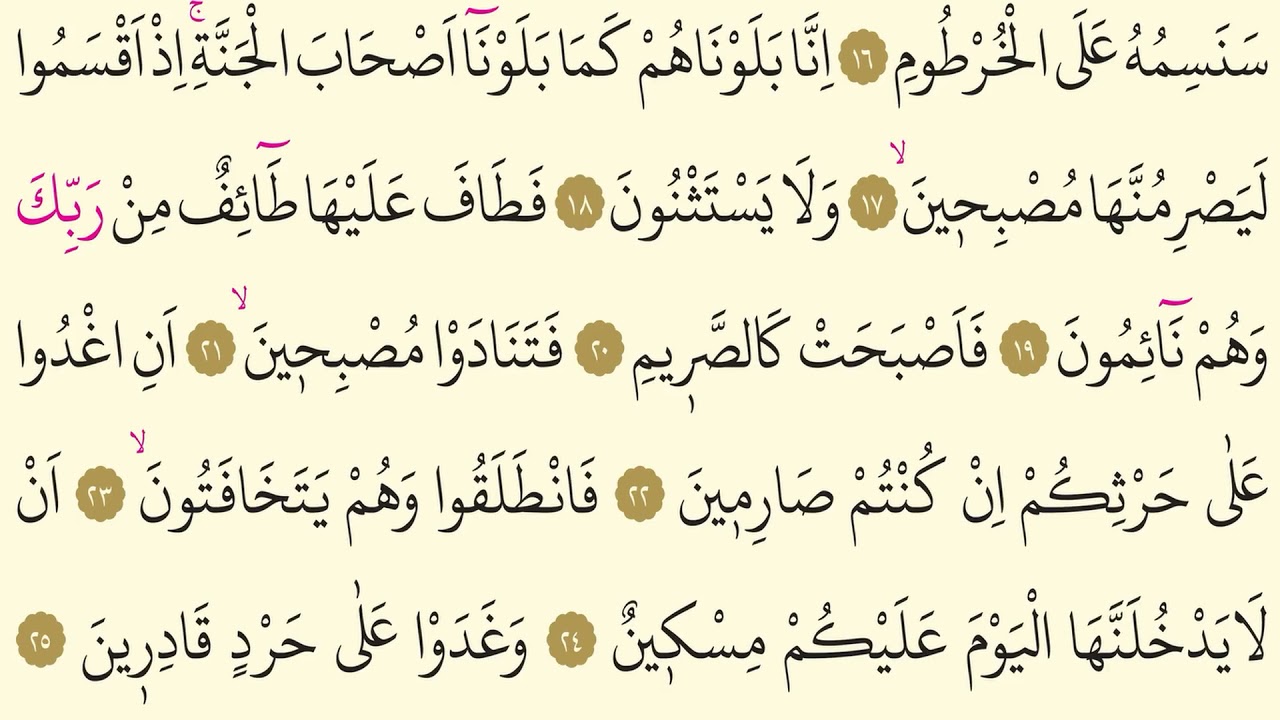 سَنَسِمُهُ عَلَى الْخُرْطُومِ ١٦ اِنَّا بَلَوْنَاهُمْ كَمَا بَلَوْنَٓا اَصْحَابَ الْجَنَّةِۚ اِذْ اَقْسَمُوا
لَيَصْرِمُنَّهَا مُصْبِح۪ينَۙ ١٧ وَلَا يَسْتَثْنُونَ ١٨ فَطَافَ عَلَيْهَا طَٓائِفٌ مِنْ رَبِّكَ
وَهُمْ نَٓائِمُونَ ١٩ فَاَصْبَحَتْ كَالصَّر۪يمِ ٢٠ فَتَنَادَوْا مُصْبِح۪ينَۙ ٢١ اَنِ اغْدُوا
عَلٰى حَرْثِكُمْ اِنْ كُنْتُمْ صَارِم۪ينَ ٢٢ فَانْطَلَقُوا وَهُمْ يَتَخَافَتُونَۙ ٢٣ اَنْ
لَا يَدْخُلَنَّهَا الْيَوْمَ عَلَيْكُمْ مِسْك۪ينٌ ٢٤ وَغَدَوْا عَلٰى حَرْدٍ قَادِر۪ينَ ٢٥